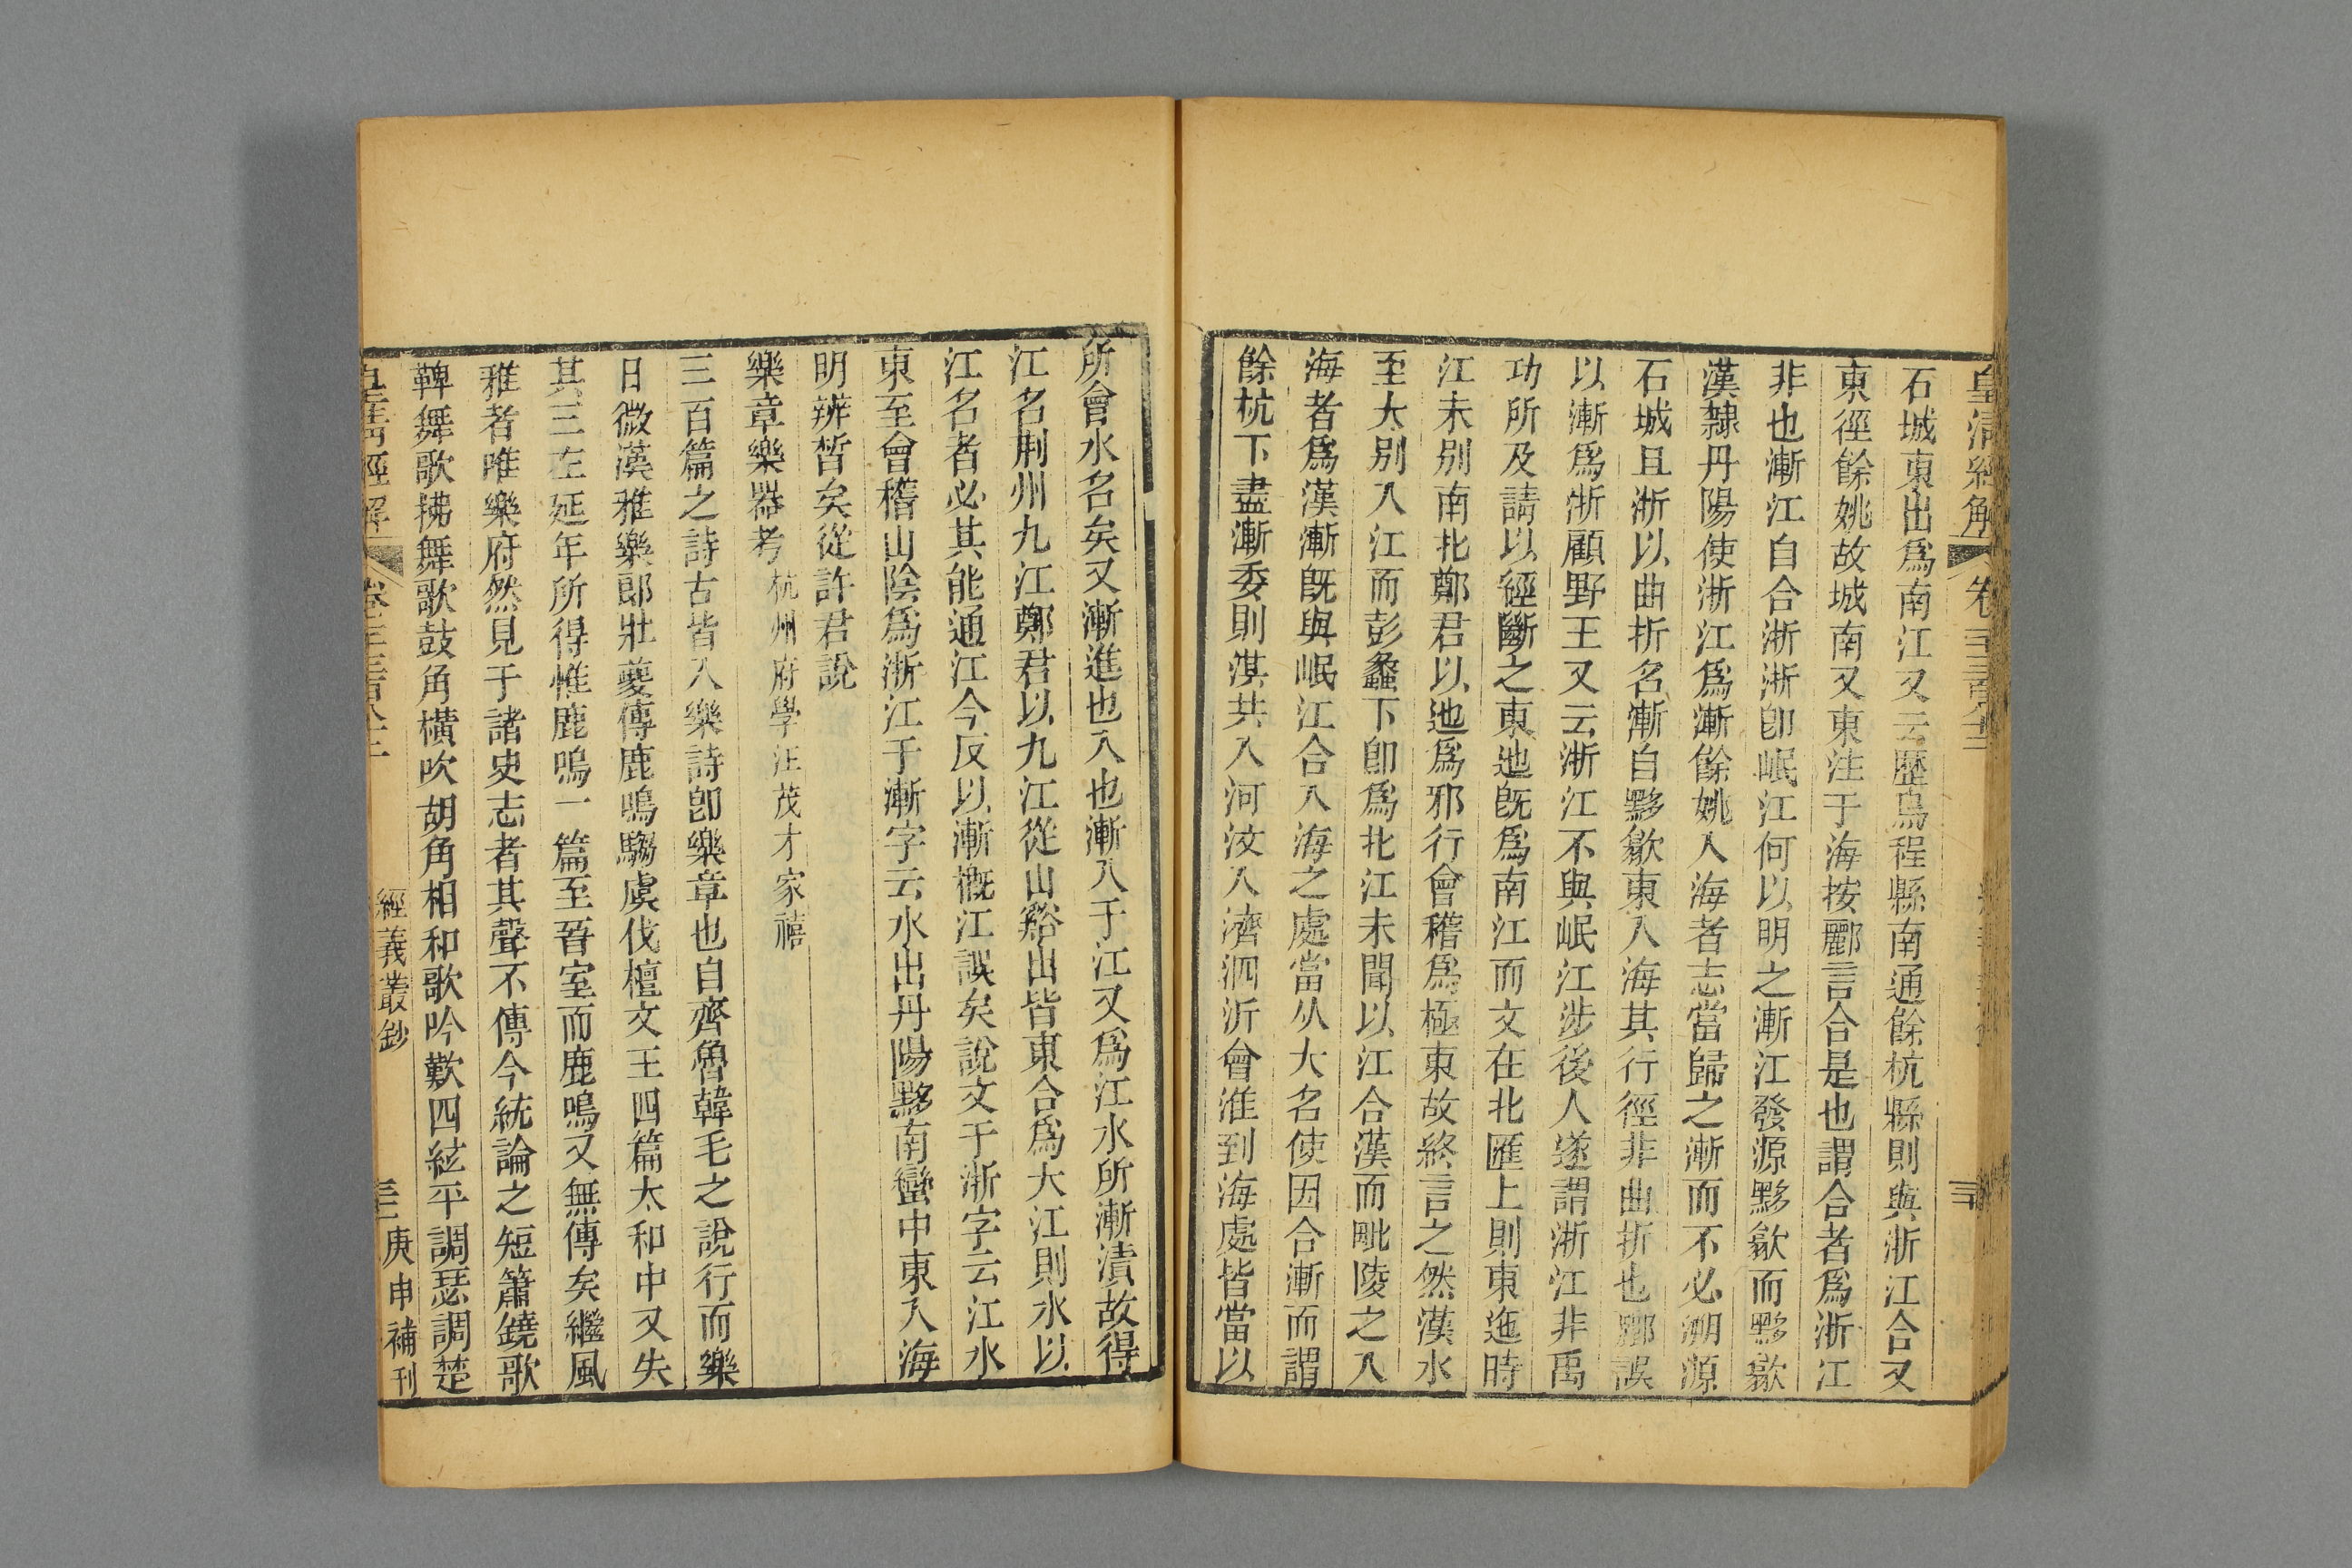 皇清經解 卷
石城東出爲南江又云歷烏程縣南通餘杭縣則與浙江合又
東徑餘姚故城南又東注于海按酈言合是也謂合者爲浙江
非也漸江自合浙浙卽岷江何以明之漸江發源黟歙而黟歙
漢隸丹陽使浙江爲漸餘姚入海者志當歸之漸而不必溯源
石城且浙以曲折名漸自黟歙東入海其行徑非曲折也酈誤
以漸爲浙顧野王又云浙江不與岷江涉後人遂謂浙江非禹
功所及請以經斷之東迆旣爲南江而文在北匯上則東迤時
江未别南北鄭君以迆爲邪行會稽爲極東故終言之然漢水
至大别入江而彭蠡下卽爲北江未聞以江合漢而毗陵之入
海者爲漢漸旣與岷江合入海之處當从大名使因合漸而謂
餘杭下盡漸委則淇共入河汶入濟泗沂會淮到海處皆當以
所會水名矣又漸進也入也漸入于江又爲江水所漸漬故得
江名荆州九江鄭君以九江從山谿出皆東合爲大江則水以
江名者必其能通江今反以漸概江誤矣說文于浙字云江水
東至會稽山陰爲浙江于漸字云水出丹陽黟南蠻中東入海
明辨晳矣從許君說
樂章樂器考 杭州府學汪茂才家禧
三百篇之詩古皆入樂詩卽樂章也自齊魯韓毛之說行而樂
日微漢雅樂郎壯夔傳鹿鳴騶虞伐檀文王四篇太和中又失
其三左延年所得惟鹿鳴一篇至晉室而鹿鳴又無傳矣繼風
雅者唯樂府然見于諸史志者其聲不傳今統論之短簫鐃歌
鞞舞歌拂舞歌鼓角橫吹胡角相和歌吟歎四絃平調瑟調楚
皇清經解 經義叢鈔 庚申補刊